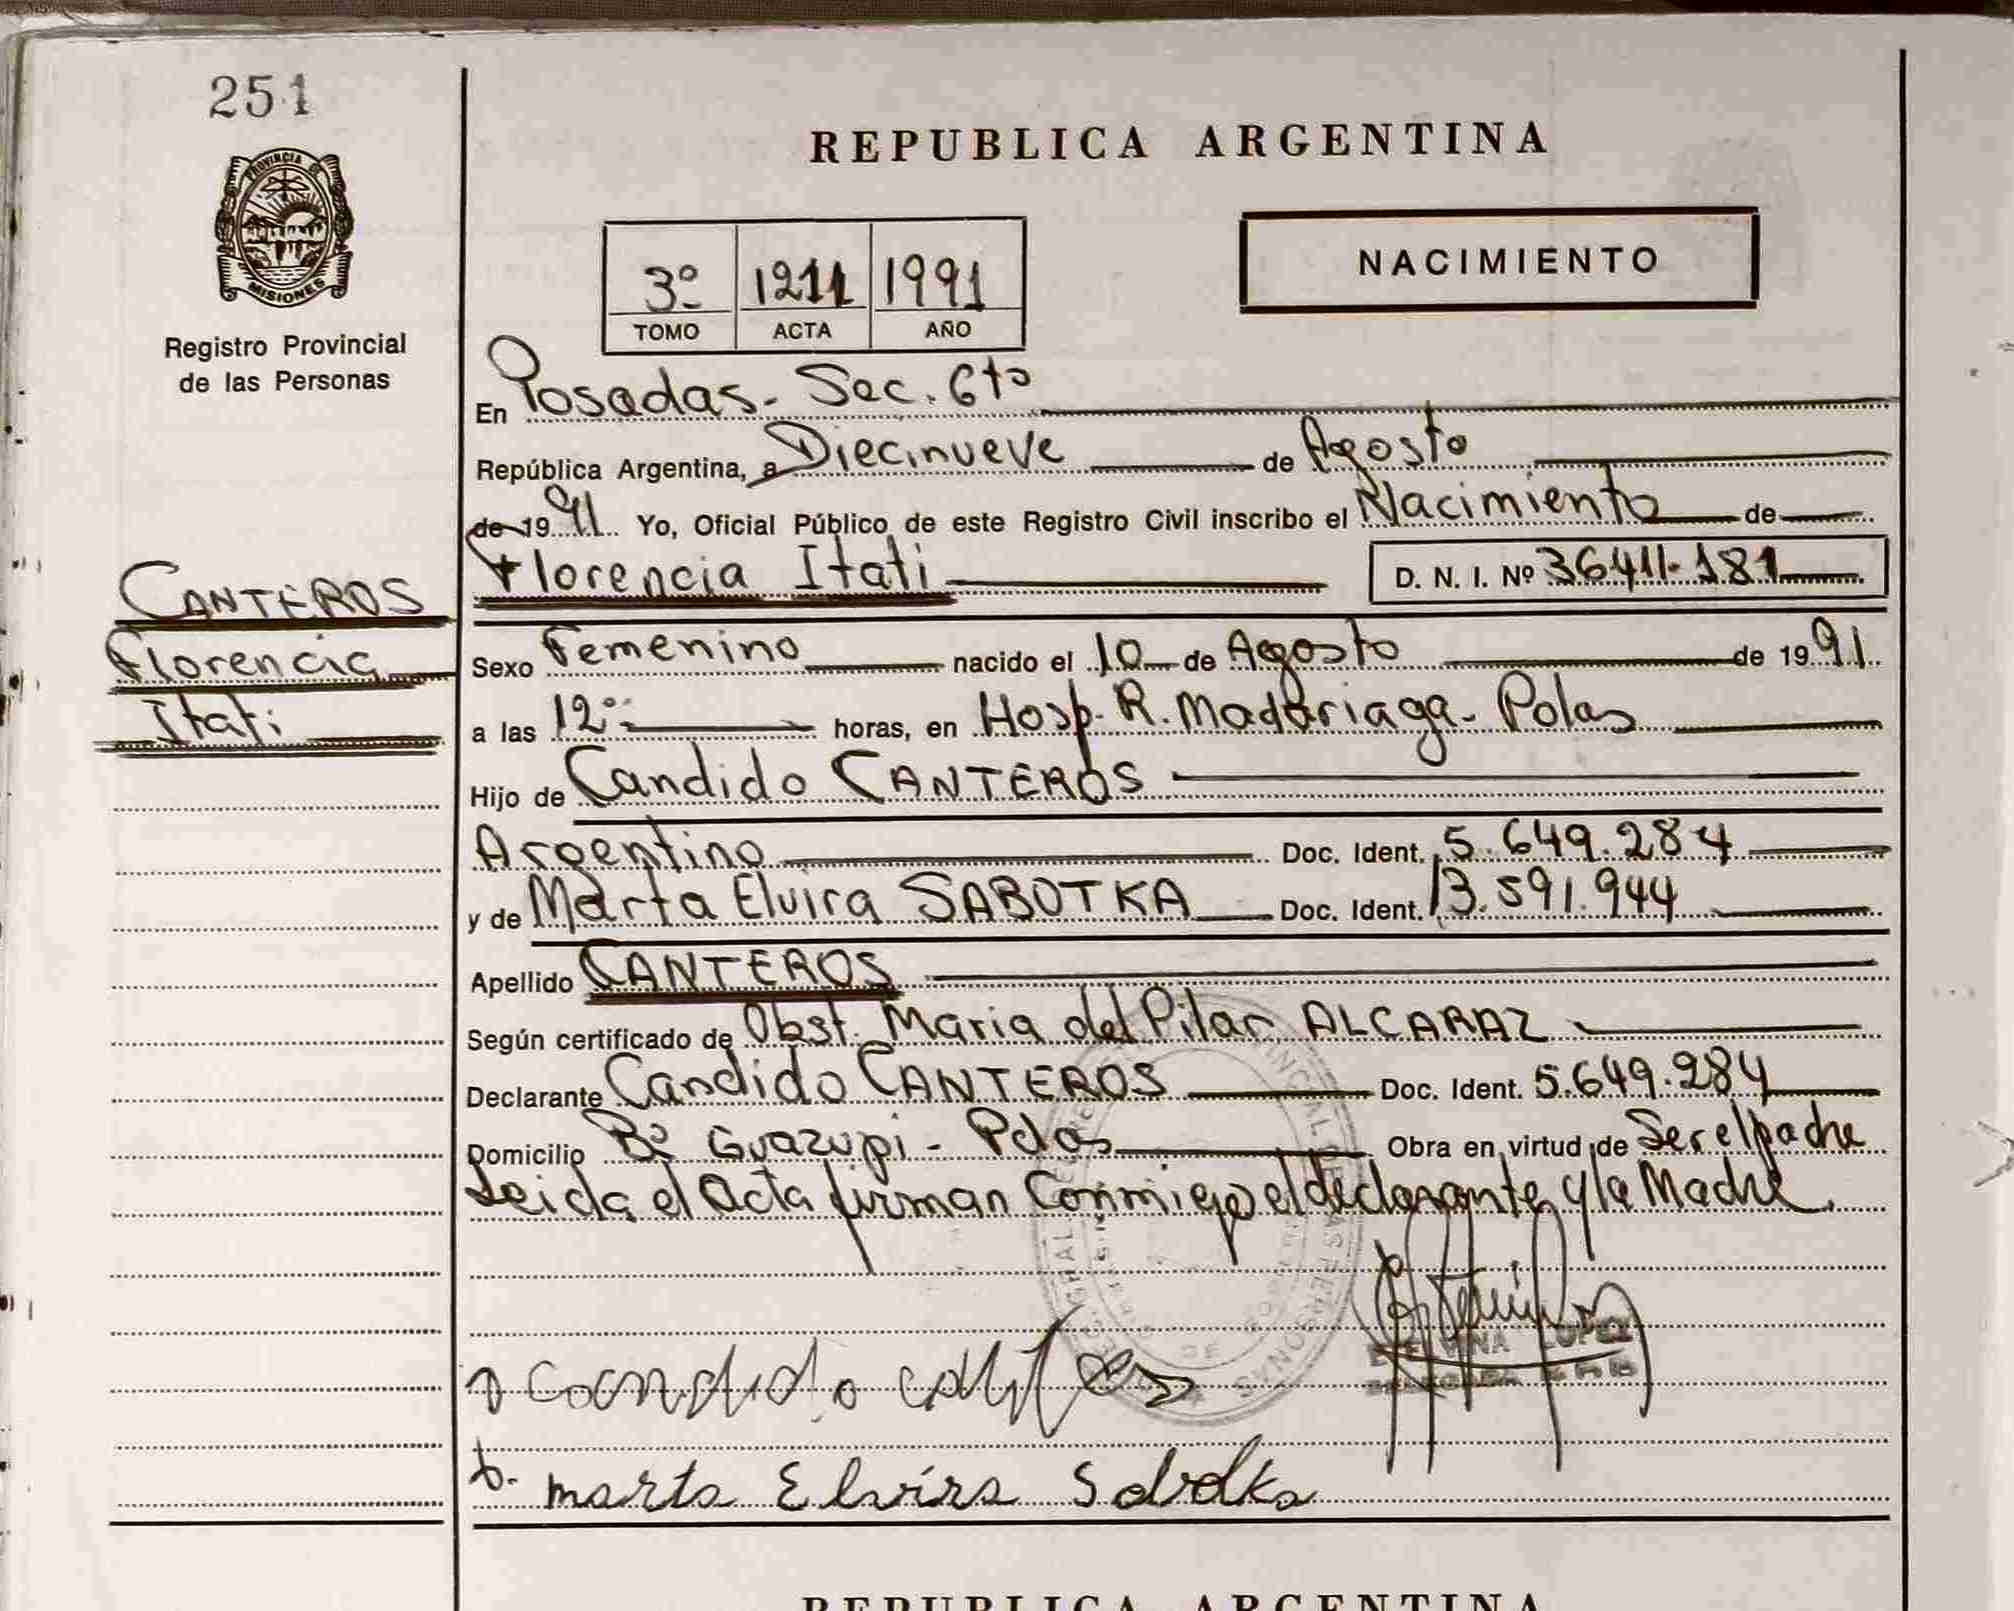 251
PROVINCIA DE
MISIONES
Registro Provincial
de las Personas
CANTEROS
Florencia
Itati
REPUBLICA ARGENTINA
NACIMIENTO
3º 1211 1991
TOMO ACTA AÑO
En Posadas - Sec. 6ta
República Argentina, a Diecinueve de Agosto
de 1991 Yo, Oficial Público de este Registro Civil inscribo el Nacimiento de
Florencia Itati D. N. I. Nº 36411.181
Sexo Femenino nacido el 10 de Agosto de 1991
a las 12º horas, en Hosp. R. Madariaga - Pdas
Hijo de Candido CANTEROS
Argentino Doc. Ident. 5.649.284
y de Marta Elvira SABOTKA Doc. Ident. 13.591.944
Apellido CANTEROS
Según certificado de Obst. Maria del Pilar ALCARAZ
Declarante Candido CANTEROS Doc. Ident. 5.649.284
Domicilio Bº Guazupi - Pdas Obra en virtud de Ser el padre
Leida el acta firman Conmigo el declarante y la Madre
Candido
LOPEZ
Marta Elvira Sabotka
REPUBLICA ARGENTINA